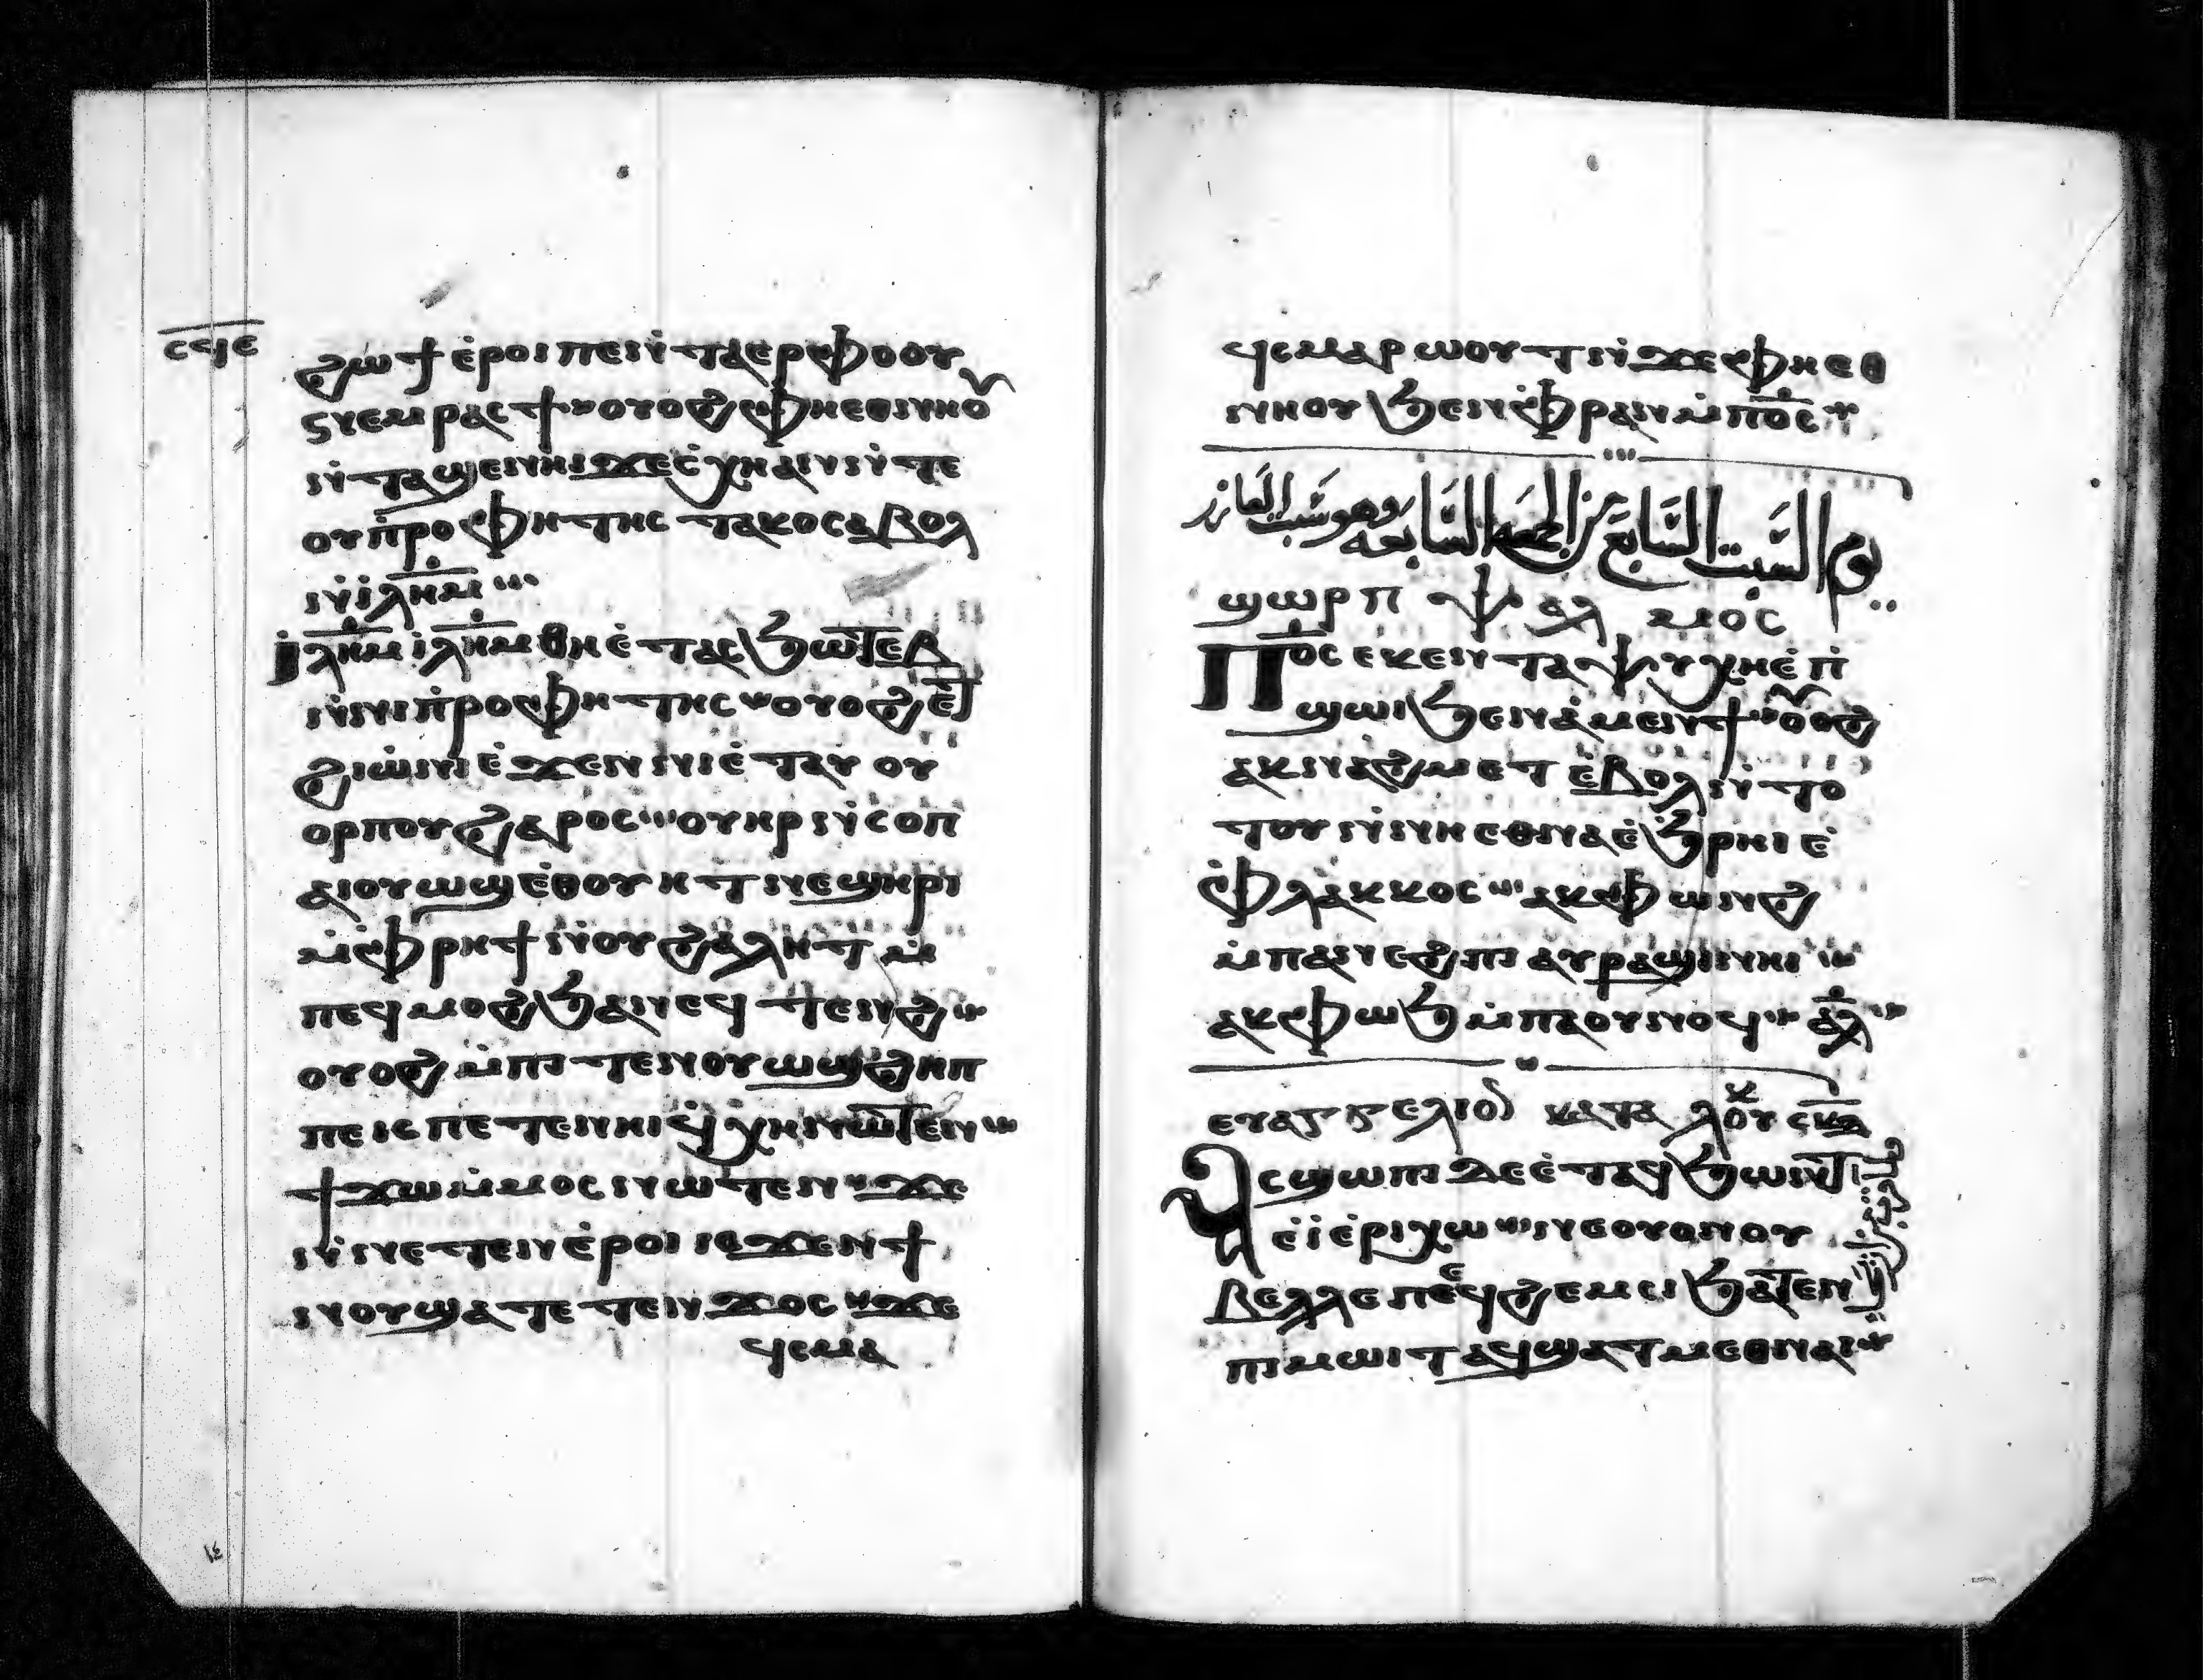 ⲥϥⲉ
ϩⲱϯ ⲉ̀ⲣⲟⲓ ⲡⲉ ⲛ̀ⲧⲁⲉⲣⲫⲟⲟⲩ
ⲛⲉⲙ ⲣⲁⲥϯ ⲟⲩⲟϩ ⲫⲏⲉⲑⲛⲏⲟⲩ
ⲛ̀ⲧⲁϣⲉⲛⲏⲓ ϫⲉ ⲥ̀ⲭⲏ ⲁⲛ ⲛ̀ⲧⲉ
ⲟⲩⲡ̀ⲣⲟⲫⲏⲧⲏⲥ ⲧⲁⲕⲟ ⲥⲁⲃⲟⲗ
ⲛ̀ⲓⲗ̅ⲏ̅ⲙ̅
ⲓⲗ̅ⲏ̅ⲙ̅ ⲓⲗ̅ⲏ̅ⲙ̅ ⲑⲏⲉ̀ⲧⲁⲥϧⲱⲧⲉⲃ
ⲛ̀ⲛⲓⲡ̀ⲣⲟⲫⲏⲧⲏⲥ ⲟⲩⲟϩ ⲉⲧ
ϩⲓⲱ̀ⲛⲓ ⲉ̀ϫⲉⲛ ⲛⲓⲉ̀ⲧⲁⲩⲟⲩ
ⲟⲣⲡⲟⲩ ϩⲁⲣⲟⲥ ⲟⲩⲏⲣ ⲛ̀ⲥⲟⲡ
ⲁⲓⲟⲩⲱϣ ⲉ̀ⲑⲟⲩⲏⲧ ⲛⲉϣⲏⲣⲓ
ⲙ̀ⲫⲣⲏϯ ⲛ̀ⲟⲩϩⲁⲗⲏⲧ ⲙ̀
ⲡⲉϥⲙⲟϩ ϧⲁ ⲛⲉϥⲧⲉⲛϩ
ⲟⲩⲟϩ ⲙ̀ⲡⲓⲧⲉⲛⲟⲩⲱϣ ϩⲏⲡ
ⲡⲉ ⲓⲥ ⲡⲉⲧⲉⲛⲏⲓ ϥ̀ⲭⲏ ⲛⲱⲧⲉⲛ
ϯϫⲱ ⲙ̀ⲙⲟⲥ ⲛⲱⲧⲉⲛ ϫⲉ
ⲛ̀ⲛⲉⲧⲉⲛ ⲉ̀ⲣⲟⲓ ⲓⲥϫⲉⲛ ϯ
ⲛⲟⲩ ϣⲁⲧⲉⲧⲉⲛϫⲟⲥ ϫⲉ
ϥ̀ⲥⲙⲁ
ϥ̀ⲥⲙⲁⲣⲱⲟⲩⲧ ⲛ̀ϫⲉ ⲫⲏⲉⲑ
ⲛⲏⲟⲩ ϧⲉⲛ ⲫ̀ⲣⲁⲛ ⲙ̀ⲡⲟ̅ⲥ̅
يوم السبت السابع من الجمعه السابعه وهو سبت العازر
ϣⲱⲣⲡ ⲯⲁⲗⲙⲟⲥ
Ⲡⲟ̅ⲥ̅ ⲉⲕⲉⲉⲛ ⲧⲁⲯⲩⲭⲏ ⲉ̀ⲡ̀
ϣⲱⲓ ϧⲉⲛ ⲁ̀ⲙⲉⲛϯ ⲟⲩⲟϩ
ⲁⲕⲛⲁϩⲙⲉⲧ ⲉ̀ⲃⲟⲗ ⲛ̀ⲧⲟ
ⲧⲟⲩ ⲛ̀ⲛⲏⲉⲑⲛⲁ ⲉ̀ϧⲣⲏⲓ ⲉ̀
ⲫ̀ⲗⲁⲕⲕⲟⲥ ⲁⲕⲫⲱⲛϩ
ⲙ̀ⲡⲁⲛⲉϩⲡⲓ ⲁⲩⲣⲁϣⲓ ⲛⲏⲓ
ⲁⲕⲫⲱϧ ⲙ̀ⲡⲁⲟⲩⲛⲟϥ ⲁ̅ⲗ̅
ⲉⲩⲁⲅⲅⲉⲗⲓⲟⲛ ⲕⲁⲧⲁ ⲗⲟⲩⲕ
Ⲁⲥϣⲱⲡⲓ ⲇⲉ ⲉ̀ⲧⲁϥϧⲱⲛⲧ
ⲉ̀ⲓⲉ̀ⲣⲓⲭⲱ ⲛⲉ ⲟⲩⲟⲛ ⲟⲩ
ⲃⲉⲗⲗⲉ ⲡⲉ ⲉϥϩⲉⲙⲥⲓ ϧⲁⲧⲉⲛ
ⲡⲓⲙⲱⲓⲧ ⲁϥϣⲁⲧⲙⲉⲑⲛⲁⲓ